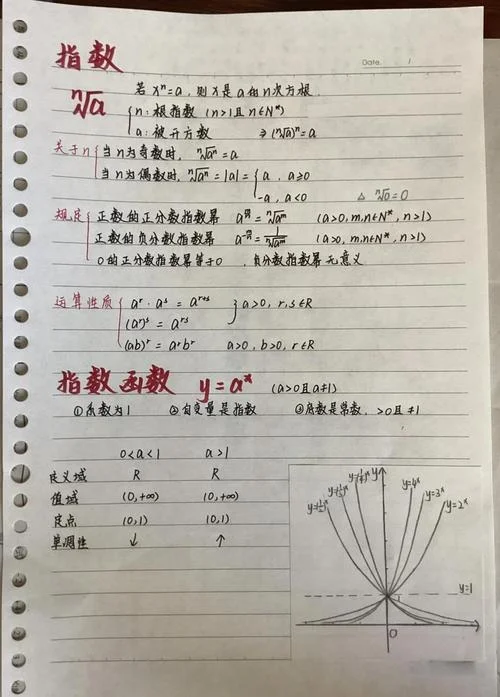 指数
Date.    /
ⁿ√a
若 xⁿ=a, 则 x 是 a 的 n 次方根.
n: 根指数 (n>1 且 n∈N*)
a: 被开方数 ⇒ (ⁿ√a)ⁿ=a
关于n
当 n 为奇数时, ⁿ√aⁿ=a
当 n 为偶数时, ⁿ√aⁿ=|a|= { a, a≥0
-a, a<0    △ ⁿ√0=0
规定
正数的正分数指数幂 a^(m/n)=ⁿ√aᵐ (a>0, m,n∈N*, n>1)
正数的负分数指数幂 a^(-m/n)=1/ⁿ√aᵐ (a>0, m,n∈N*, n>1)
0的正分数指数幂等于0, 负分数指数幂无意义
运算性质
aʳ·aˢ=aʳ⁺ˢ } a>0, r,s∈R
(aʳ)ˢ=aʳˢ
(ab)ʳ=aʳbʳ a>0, b>0, r∈R
指数函数 y=aˣ (a>0且a≠1)
①系数为1 ②自变量是指数 ③底数是常数, >0且≠1
0<a<1 a>1
定义域 R R
值域 (0,+∞) (0,+∞)
定点 (0,1) (0,1)
单调性 ↓ ↑
y=(1/2)ˣ y=(1/3)ˣ y=(1/4)ˣ y y=4ˣ y=3ˣ y=2ˣ
y=1
1
0 x